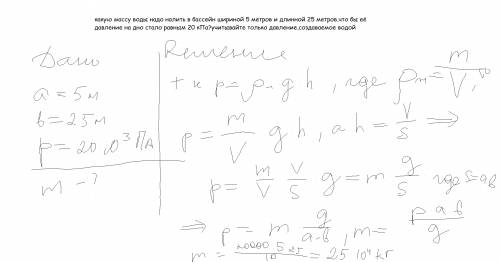 какую массу воды надо налить в бассейн шириной 5 метров и длинной 25 метров,что бы её
давление на дно стало равным 20 кПа?учитывайте только давление,создаваемое водой
Дано
a = 5м
b = 25м
p = 20 10³ Па
m - ?
Решение
т к p = ρж g h, где ρж = m/V, то
p = m/V g h, а h = V/S ⇒
p = m/V V/S g = m g/S где S=ab
⇒ p = m g/a·b, m = p a b/g
m = 20000 5 25/10 = 25 10⁴ кг